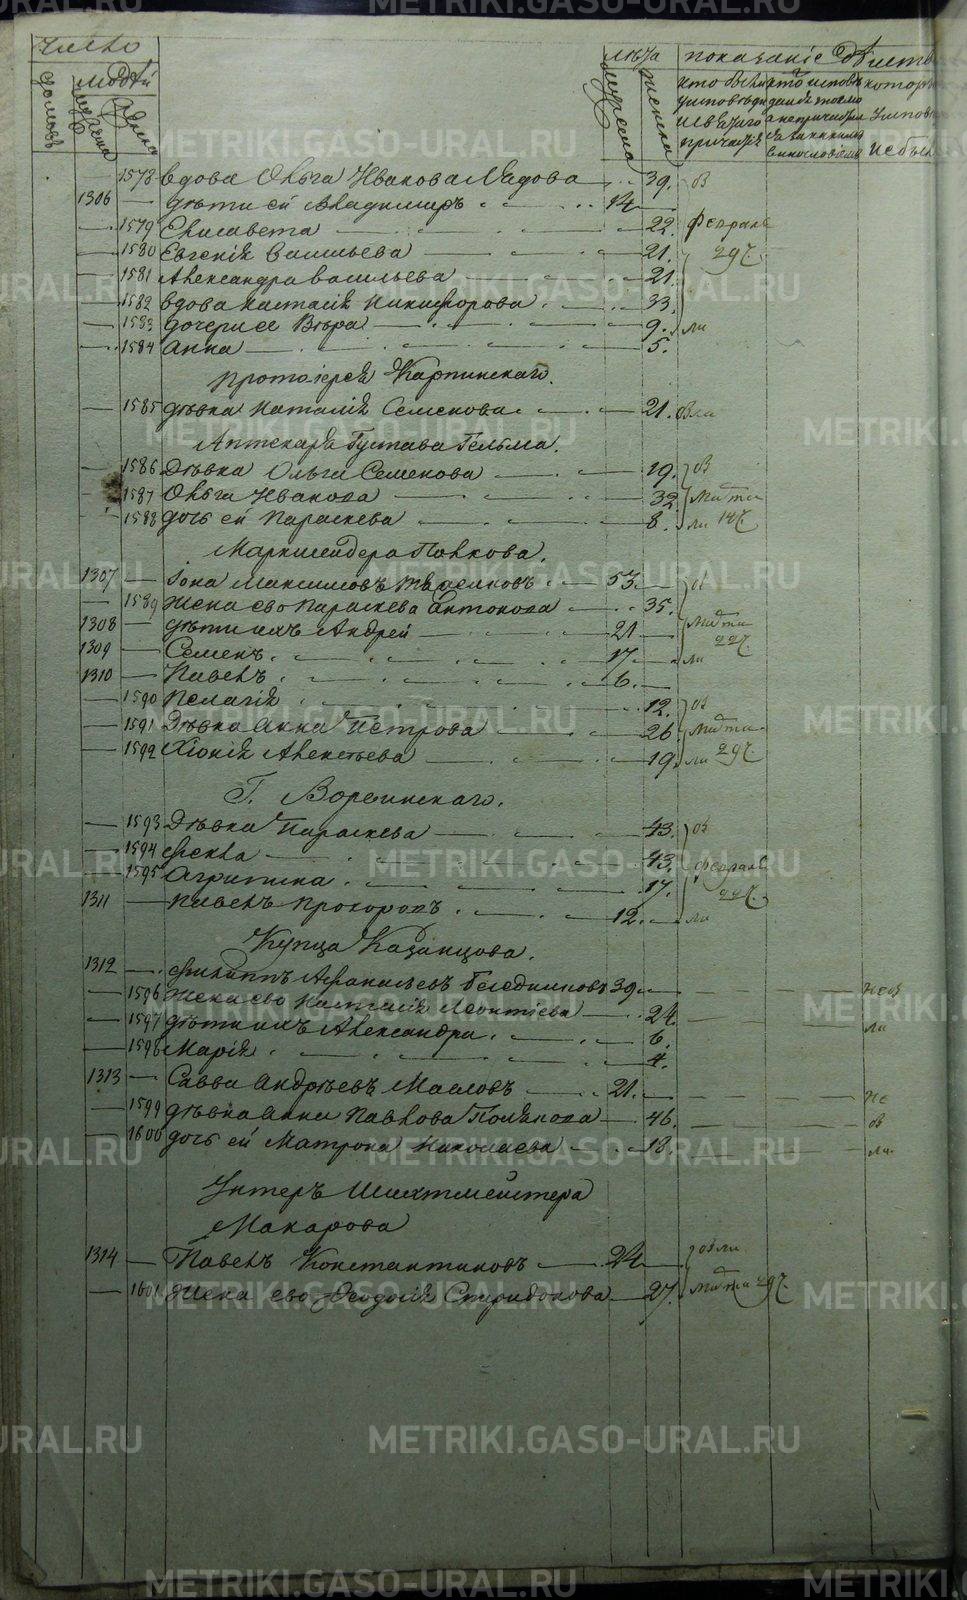 число
людей
домовъ
мужеска
женска
лѣта
мужеска
женска
показанiе дѣйств
кто былъ
у исповѣди
и св. при
кто исповѣ
дался токмо
а не причастил
ся и за какимъ
винословiемъ
котор
у испов
не был
1578 вдова Ольга Иванова 39. об
1306 дѣти ей Владимиръ 14
1579 Елисавета 22. Февраль
1580 Евгенiя Васильева 21. 29.
1581 Александра Васильева 21.
1582 вдова Настасiя Никифорова 33.
1583 дочери ее Вѣра 9. ли
1584 Анна 5.
Протоiерея Карпинскаго.
1585 дѣвка Наталiя Семенова 21. обли
Аптекаря Густава Гельма.
1586 Дѣвка Ольга Семенова 19. об
1587 Ольга Иванова 32. Марта
1588 дочь ей Параскева 8. ли 14.
Маркшейдера Попкова.
1307 Iона Максимовъ 53. об
1589 Жена ево Параскева Антонова 35.
1308 дѣти ихъ Андрей 21 Марта
1309 Семенъ. 17. 22. ли
1310 Павелъ. 6.
1590 Пелагiя 12. об
1591 Дѣвка Анна Петрова 26. Марта
1592 Хiонiя Авектьева 19. ли 29.
Г.
1593 Дѣвка Параскева 43. об
1594 Фекла 43. Февраль
1595 Агрипина 17. 22.
1311 Павелъ Прохоровъ 12. ли
Купца Казанцова.
1312 Филиппъ Афанасьевъ 39. не об
1596 Жена ево Настасiя Леонтiева 24. ли
1597 дѣти ихъ Александра. 6.
1598 Марiя. 4.
1313 Савва Андрѣевъ Масловъ 21. не
1599 дѣвка Анна Павлова 46. об
1600 дочь ей Матрона Николаева 18. ли.
Унтеръ Шихтмейстера
Макарова
1314 Павелъ Константиновъ 24 обли
1601 Жена ево Феодосiя Спиридонова 27. Марта 29.
METRIKI.GASO-URAL.RU